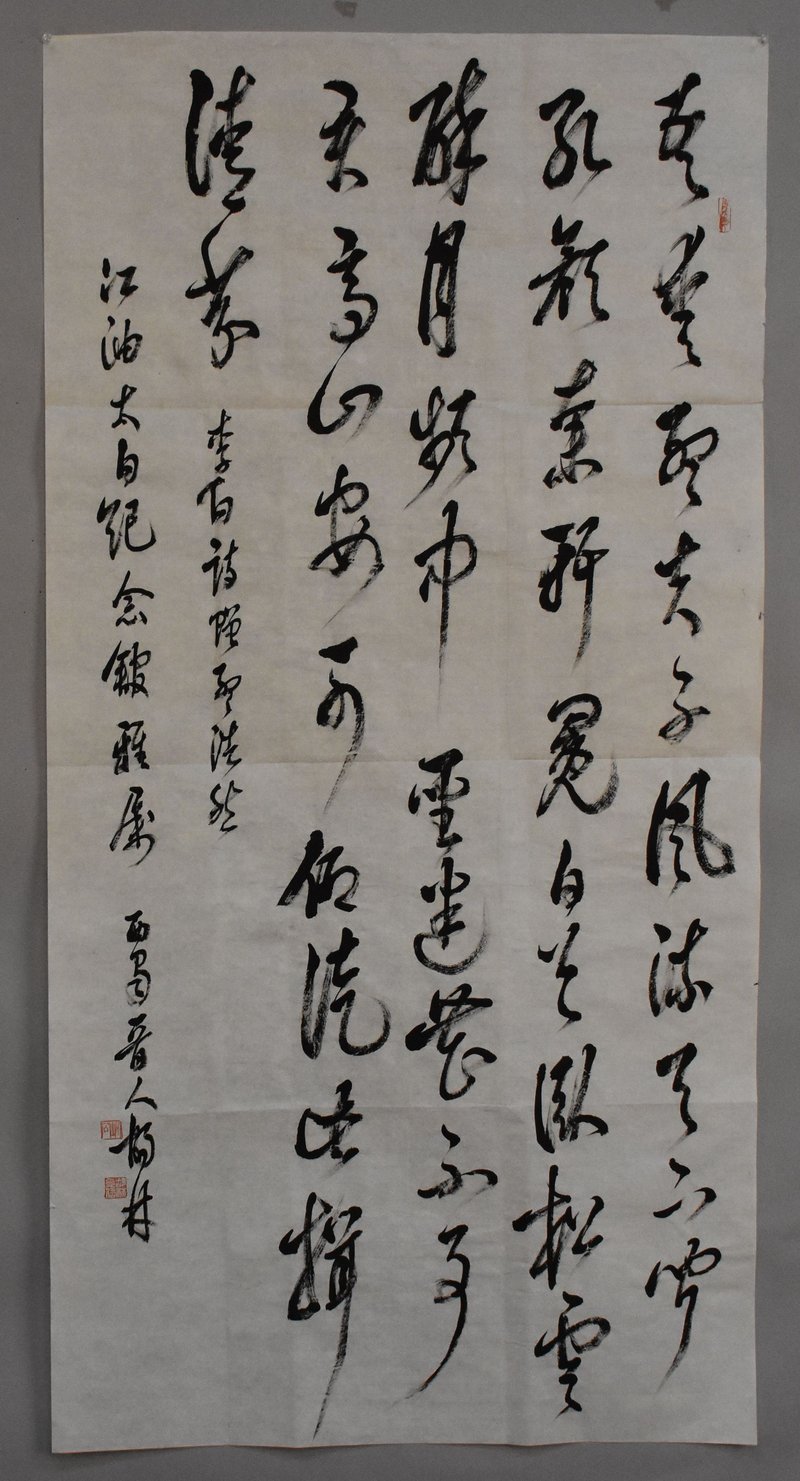 吾愛孟夫子風流天下聞
紅顏棄軒冕白首臥松雲
醉月頻中聖迷花不事
君高山安可仰徒此揖
清芬 李白詩贈孟浩然
江油太白紀念館雅屬 西蜀晉人楊林